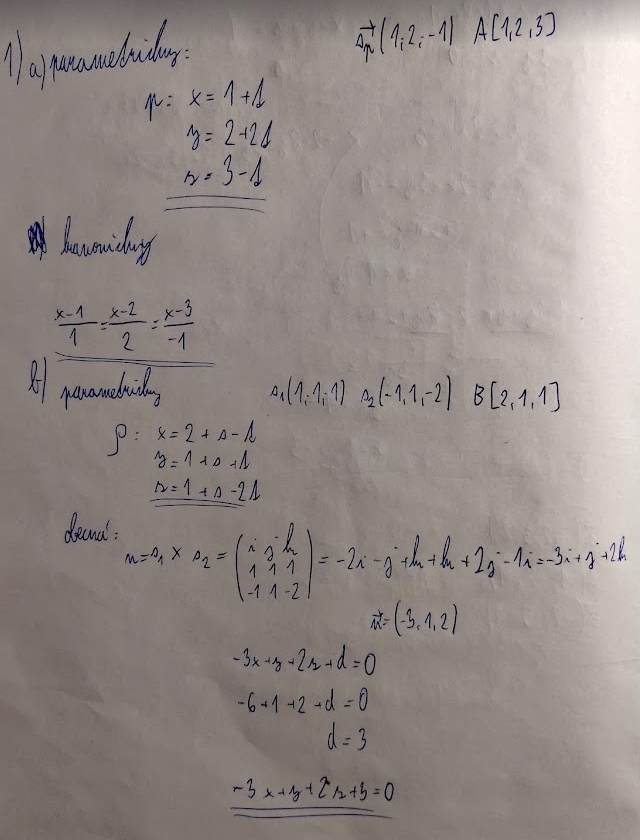 s⃗ₚ(1,2,-1) A[1,2,3]
1) a) parametricky:
p: x = 1+1t
y = 2+2t
z = 3-t
kanonicky
(x-1)/1 = (x-2)/2 = (x-3)/-1
b) parametricky s₁(1,1,1) s₂(-1,1,-2) B[2,1,1]
ρ: x = 2 + s - t
y = 1 + s + t
z = 1 + s - 2t
n = s₁ × s₂ = (i j k
1 1 1
-1 1 -2) = -2i - j + k + k + 2j - 1i = -3i + j + 2k
n⃗ = (-3,1,2)
-3x + y + 2z + d = 0
-6 + 1 + 2 + d = 0
d = 3
-3x + y + 2z + 3 = 0